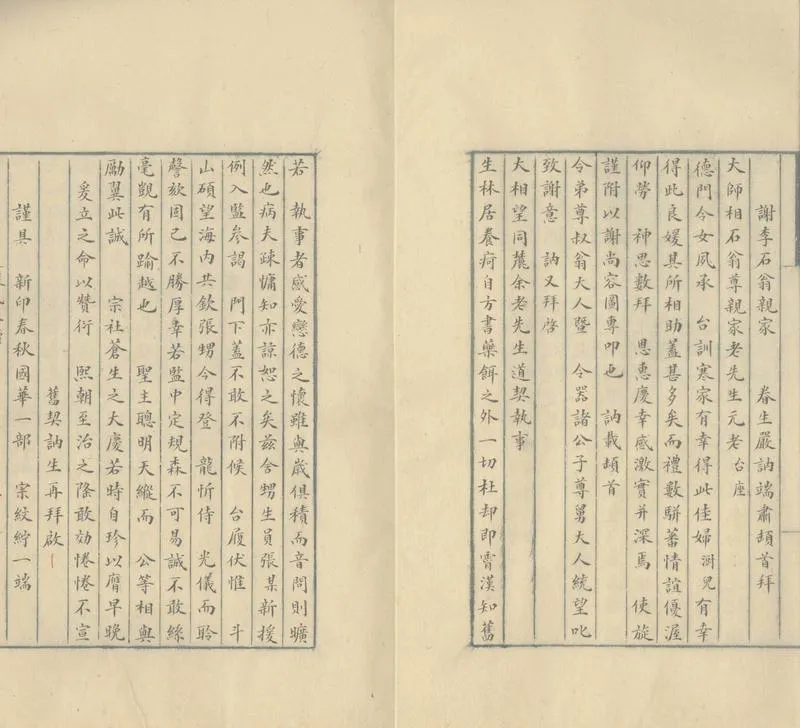 謝李石翁親家　眷生嚴訥端肅頓首拜
大師相石翁尊親家老先生元老台座
德門令女夙承　台訓寒家有幸得此佳婦澍兒有幸
得此良媛其所相助蓋甚多矣而禮數駢蕃情誼優渥
仰勞　神思數拜　恩惠慶幸感激實并深焉　使旋
謹附以謝尚容圖專叩也　訥載頓首
令弟尊叔翁大人暨　令器諸公子尊舅大人統望叱
致謝意　訥又拜啓
大相望同麓余老先生道契執事
生林居養疴自方書藥餌之外一切杜却即霄漢知舊
若　執事者感愛戀德之懷雖與歲俱積而音問則曠
然也病夫疎慵知亦諒恕之矣茲舍甥生員張某新援
例入監參謁　門下蓋不敢不附候　台履伏惟　斗
山碩望海內共欽張甥今得登　龍忻侍　光儀而聆
謦欬固已不勝厚幸若監中定規森不可易誠不敢絲
毫覬有所踰越也　聖主聰明天縱而　公等相與
勵翼此誠　宗社蒼生之大慶若時自珍以膺早晚
爰立之命以贊衍　熙朝至治之隆敢効惓惓不宣
舊契訥生再拜啟
謹具　新印春秋國華一部　宗紋紵一端